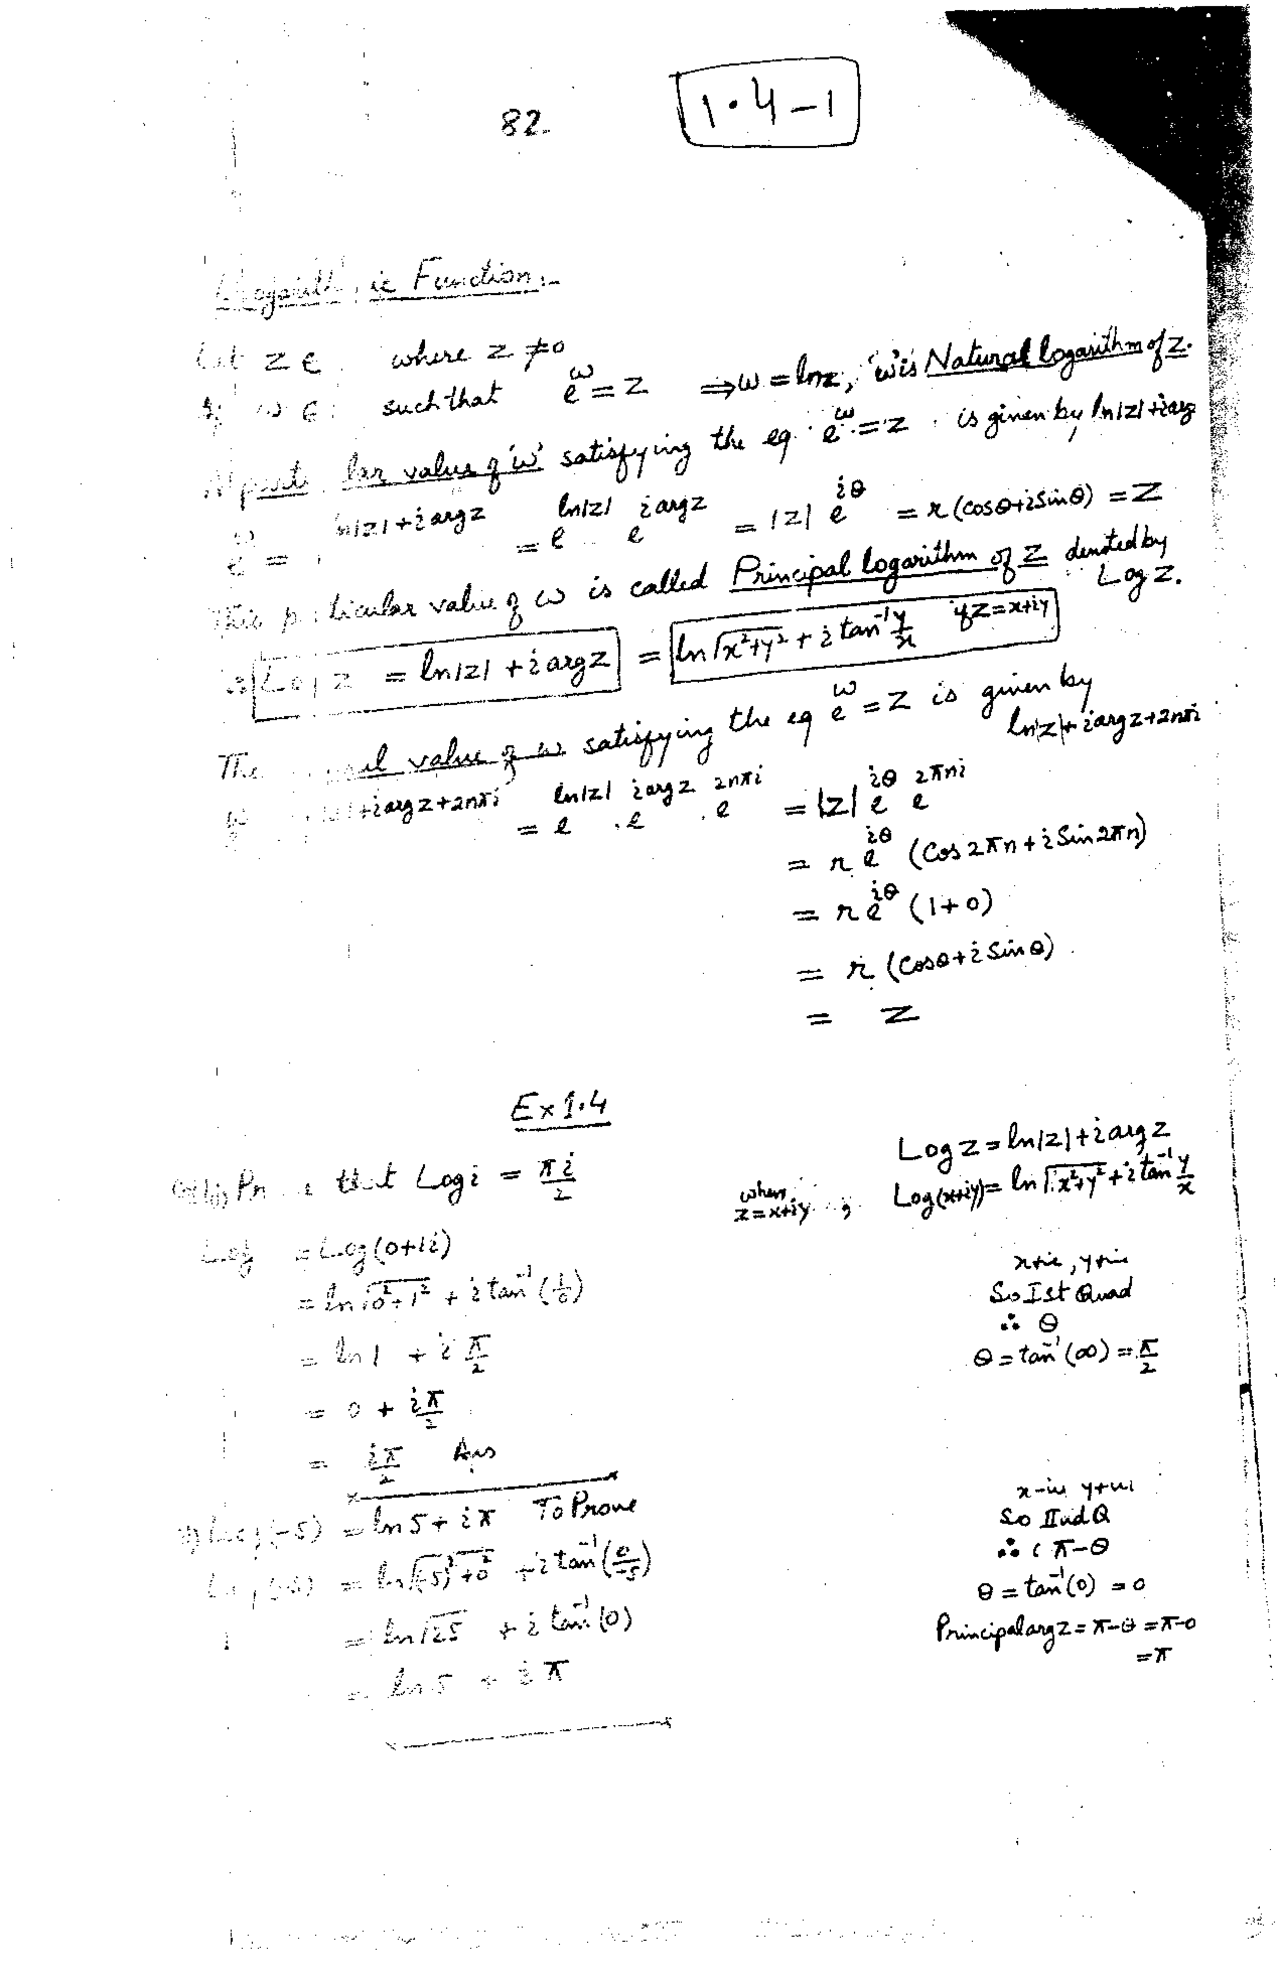 82.
1.4-1
Function:-
z ∈ where z ≠ 0
w ∈ such that e^w = z ⇒ w = ln z, 'w' is Natural logarithm of z.
lar value of 'w' satisfying the eq. e^w = z is given by ln|z|+i arg z
e^w = ln|z|+i arg z = e^ln|z| e^i arg z = |z| e^iθ = r(cosθ+i Sinθ) = Z
This ticular value of w is called Principal logarithm of Z denoted by
Log Z.
Log z = ln|z| + i arg z = ln√x²+y² + i tan⁻¹ y/x if Z = x+iy
The al value of w satisfying the eq e^w = Z is given by
ln|z|+i arg z+2nπi
+i arg z+2nπi = e^ln|z| . e^i arg z . e^2nπi = |z| e^iθ e^2πni
= r e^iθ (Cos 2πn + i Sin 2πn)
= r e^iθ (1+0)
= r (Cosθ + i Sinθ)
= Z
Ex 1.4
Log z = ln|z| + i arg z
that Log i = πi/2
when z = x+iy , Log(x+iy) = ln√x²+y² + i tan⁻¹ y/x
= Log(0+1i)
= ln√0²+1² + i tan⁻¹(1/0)
= ln 1 + i π/2
= 0 + iπ/2
= iπ/2 Ans
x+ive, y+ive
So Ist Quad
∴ θ
θ = tan⁻¹(∞) = π/2
Log(-5) = ln 5 + iπ To Prove
= ln√(-5)²+0² + i tan⁻¹(0/-5)
= ln√25 + i tan⁻¹(0)
= ln 5 + iπ
x-ive y+ive
So IInd Q
∴ π-θ
θ = tan⁻¹(0) = 0
Principal arg z = π-θ = π-0
= π